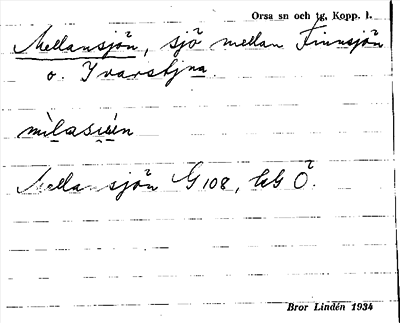 Orsa sn och tg, Kopp. l.
Mellansjön, sjö mellan Finnsjön
o. Yvarstjna.
mìlasι̣én
Mellansjön G 108, bG Ö.
Bror Lindén 1934